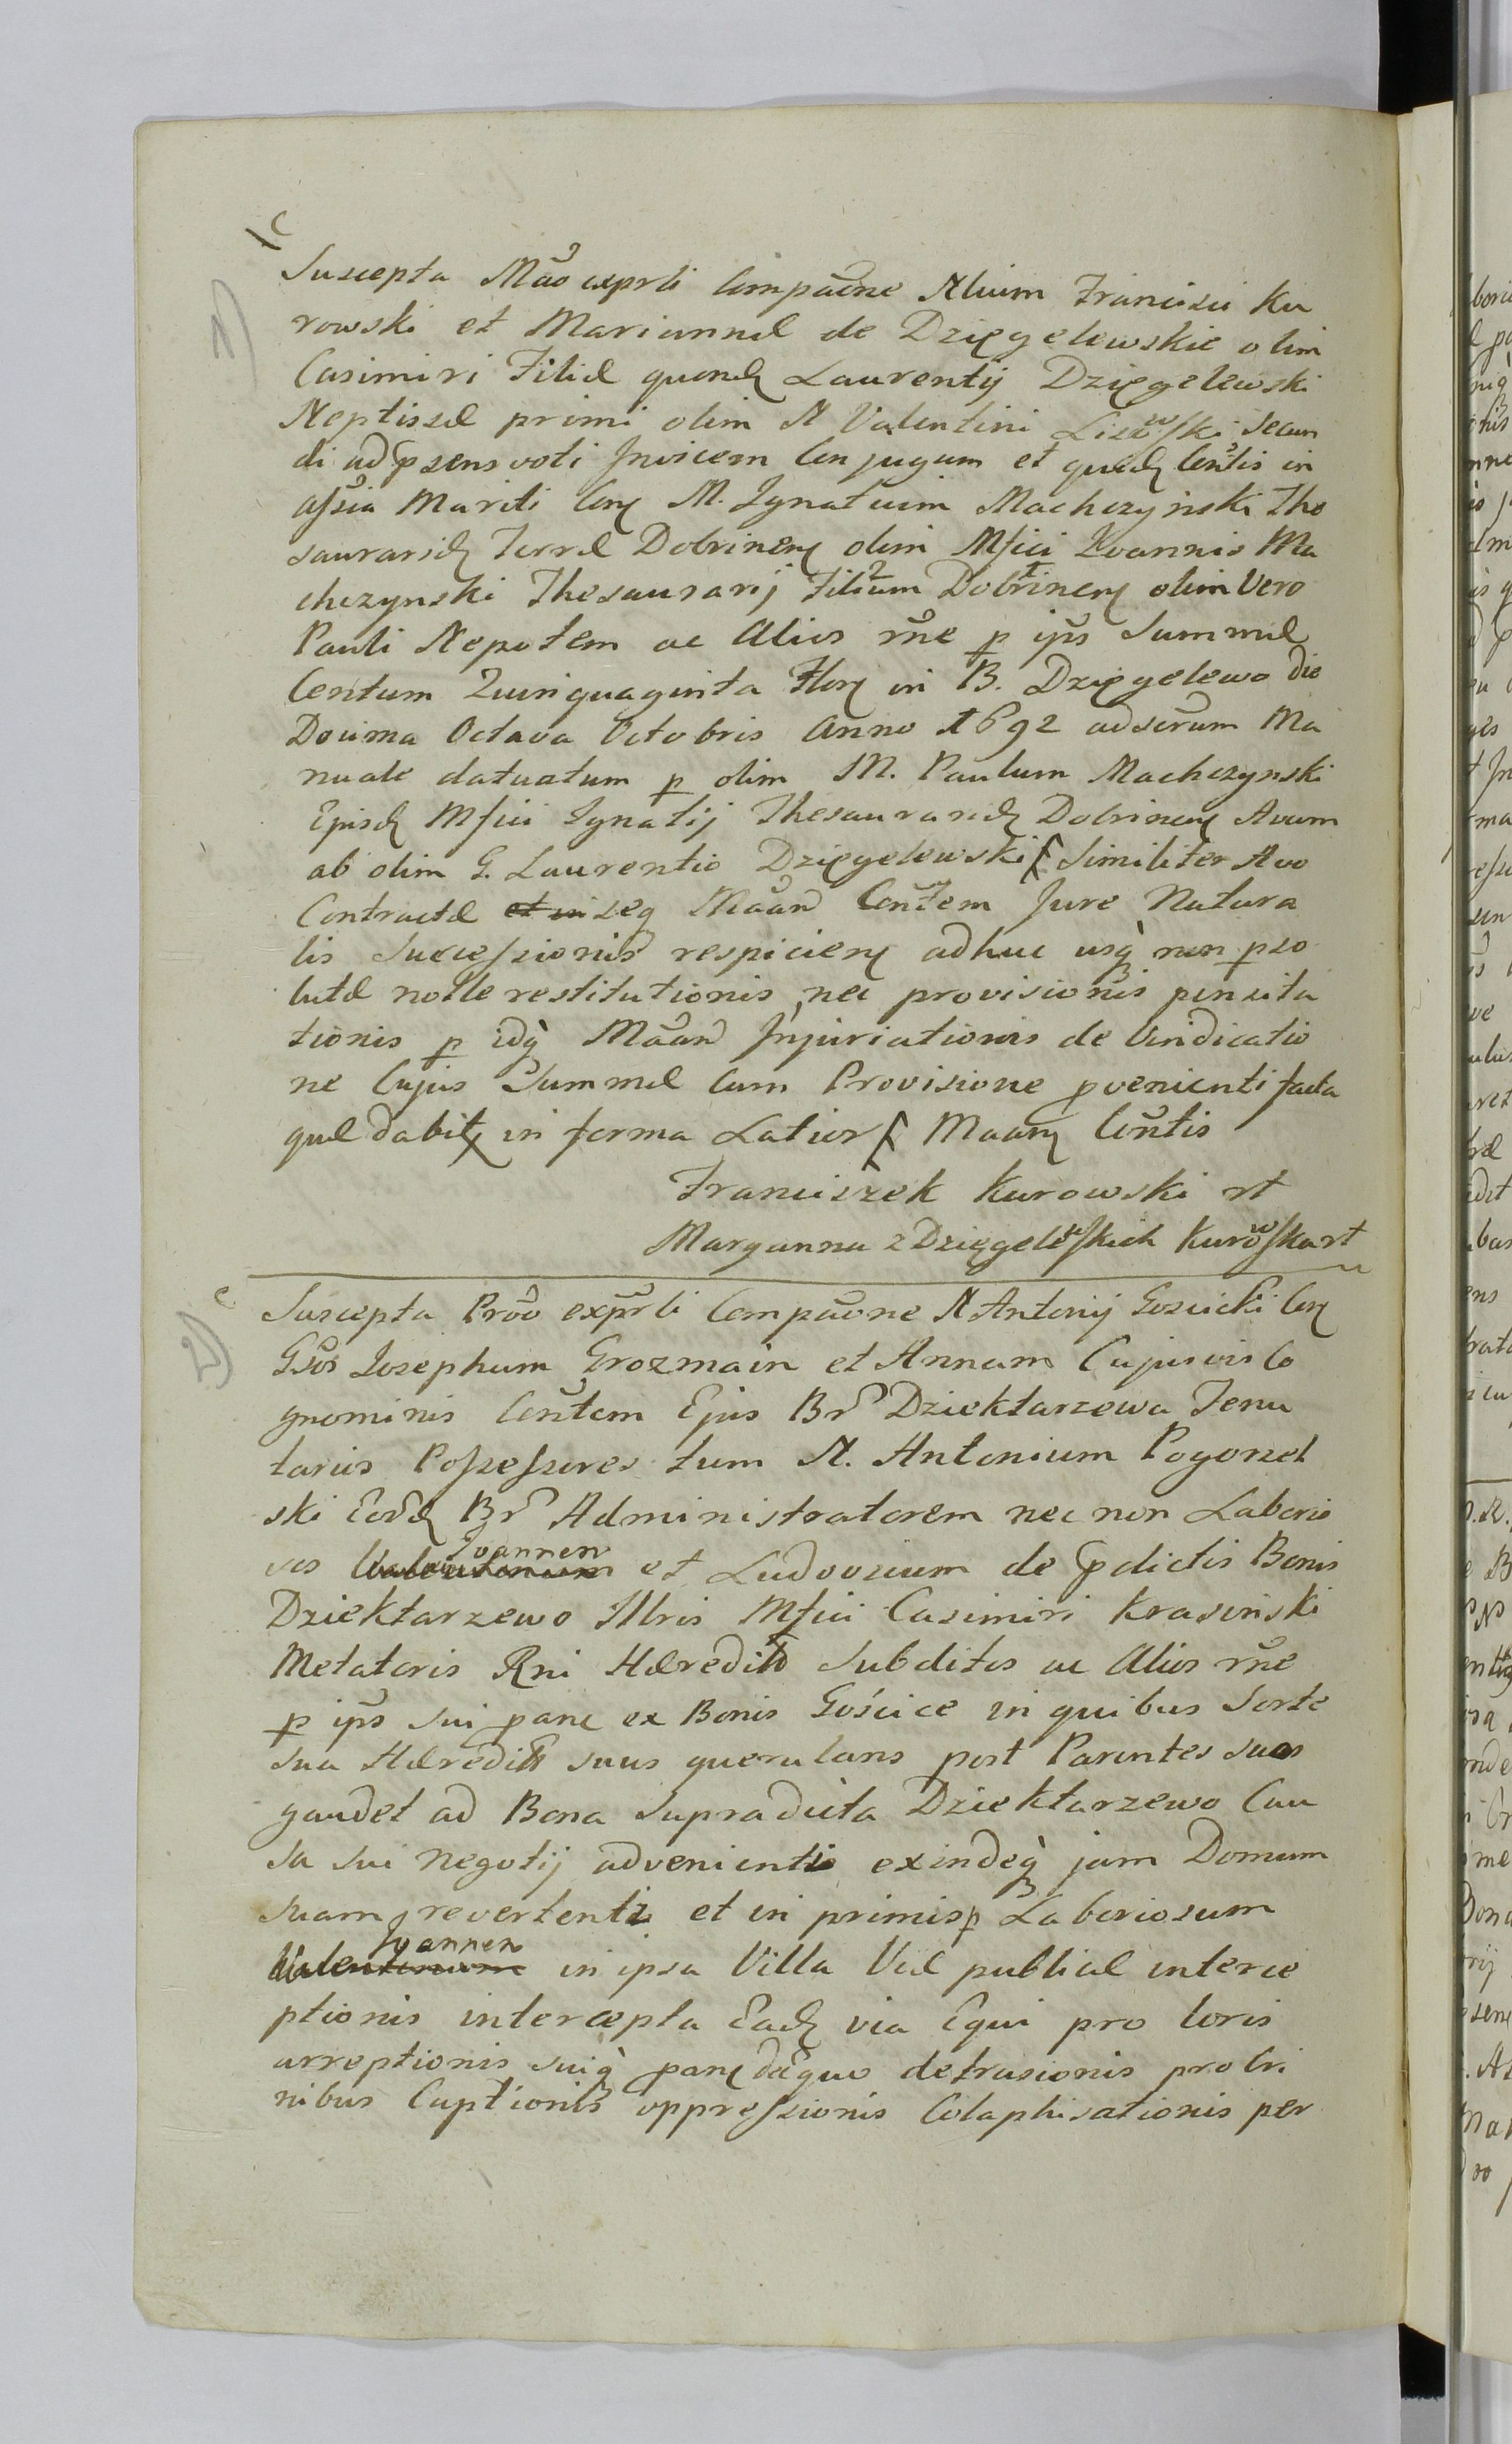 1)
Suscepta Mão exprti Compaõne Nlium Francisci Ku
rowski et Mariannæ de Dzięgelewskie olim
Casimiri Filiæ quond Laurentij Dzięgelewski
Neptissæ primi olim N Valentini Lisowski secun
di ad psens voti Invicem Conjugum et quid Cenτis in
assia Mariti Con M. Ignatium Machczynski The
saurarid Terræ Dobrinen olim Mfici Joannis Ma
chczynski Thesaurarij Filium Dobrinen olim Vero
Pauli Nepotem ac Alios rñe p ips Summæ
Centum Quinquaginta Flor in B. Dzięgelewo die
Decima Octava Octobris Anno 1692 ad scrum Ma
nuale datuatum p olim M. Paulum Machczynski
Ejusd Mfici Ignatij Thesaurarid Dobrinen Avum
ab olim G. Laurentio Dzięgelewski Similiter Avo
Contractæ et in seq Mãan Contem Jure Natura
lis Successionis respicien adhuc usq non pso
lutæ nolle restitutionis nec provisionis pensita
tionis p idq Mãan Injuriationis de Vindicatio
ne Cujus Summæ Cum Provisione pvenienti facta
quæ dabit in forma Latior Maan Cõntis
Franciszek Kurowski rt
Maryanna z Dzięgelewskich Kurowska rt
2)
Suscepta Prõo exprti Compaõne N Antonij Goscicki Con
Gsos Josephum Grozmain et Annam Cujusvis Co
gnominis Cõntem Ejus Br Dziektarzewa Tenu
tarios Possessores tum N. Antonium Pogorzel
ski Eord Br Administratorem nec non Laborio
sos Valentinum Joannen et Ludovicum de pdictis Bonis
Dziektarzewo Illris Mfici Casimiri Krasinski
Metatoris Rni Hæredit Subditos ac Alios rñe
p ips sui pane ex Bonis Gościce in quibus Sorte
sua Hæredit suus querulans post Parentes suos
gaudet ad Bona Supradicta Dziektarzewo Cau
sa sui Negotij advenienti exindeq jam Domum
suam revertenti et in primis p Laboriosum
Valentinum Joannen in ipsa Villa Viæ publicæ interce
ptionis intercepta Ead via Equi pro loris
arreptionis suiq pane dequo detrusionis pro Cri
nibus Captionis oppressionis Colaphisationis per